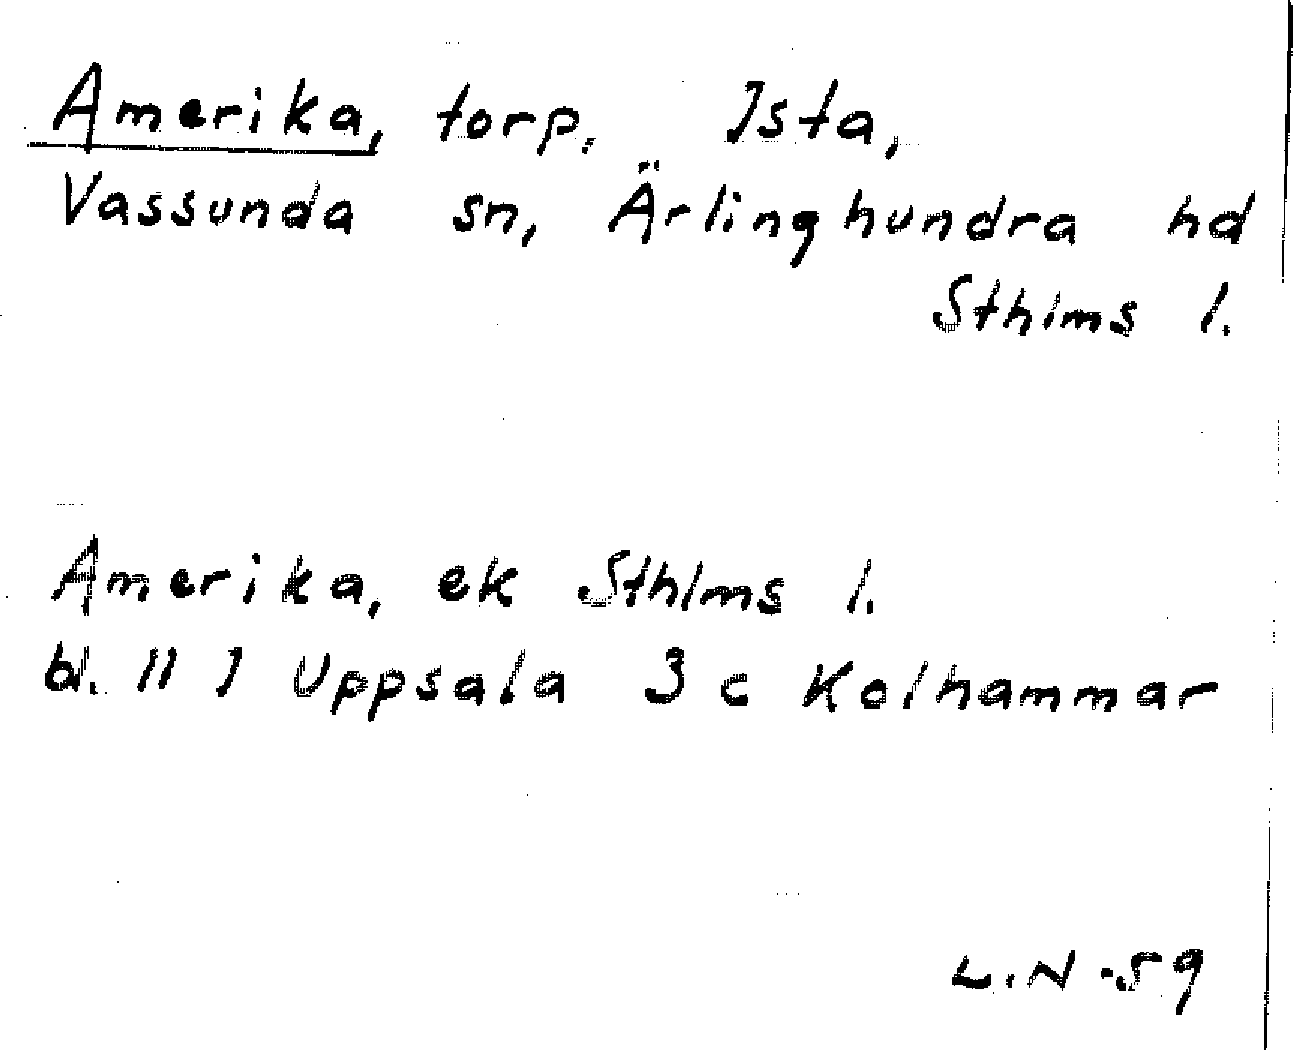 Amerika, torp. Ista,
Vassunda sn, Ärlinghundra hd
Sthlms l.
Amerika, ek Sthlms l.
bl. 11 I Uppsala 3 c Kolhammar
L.N -59